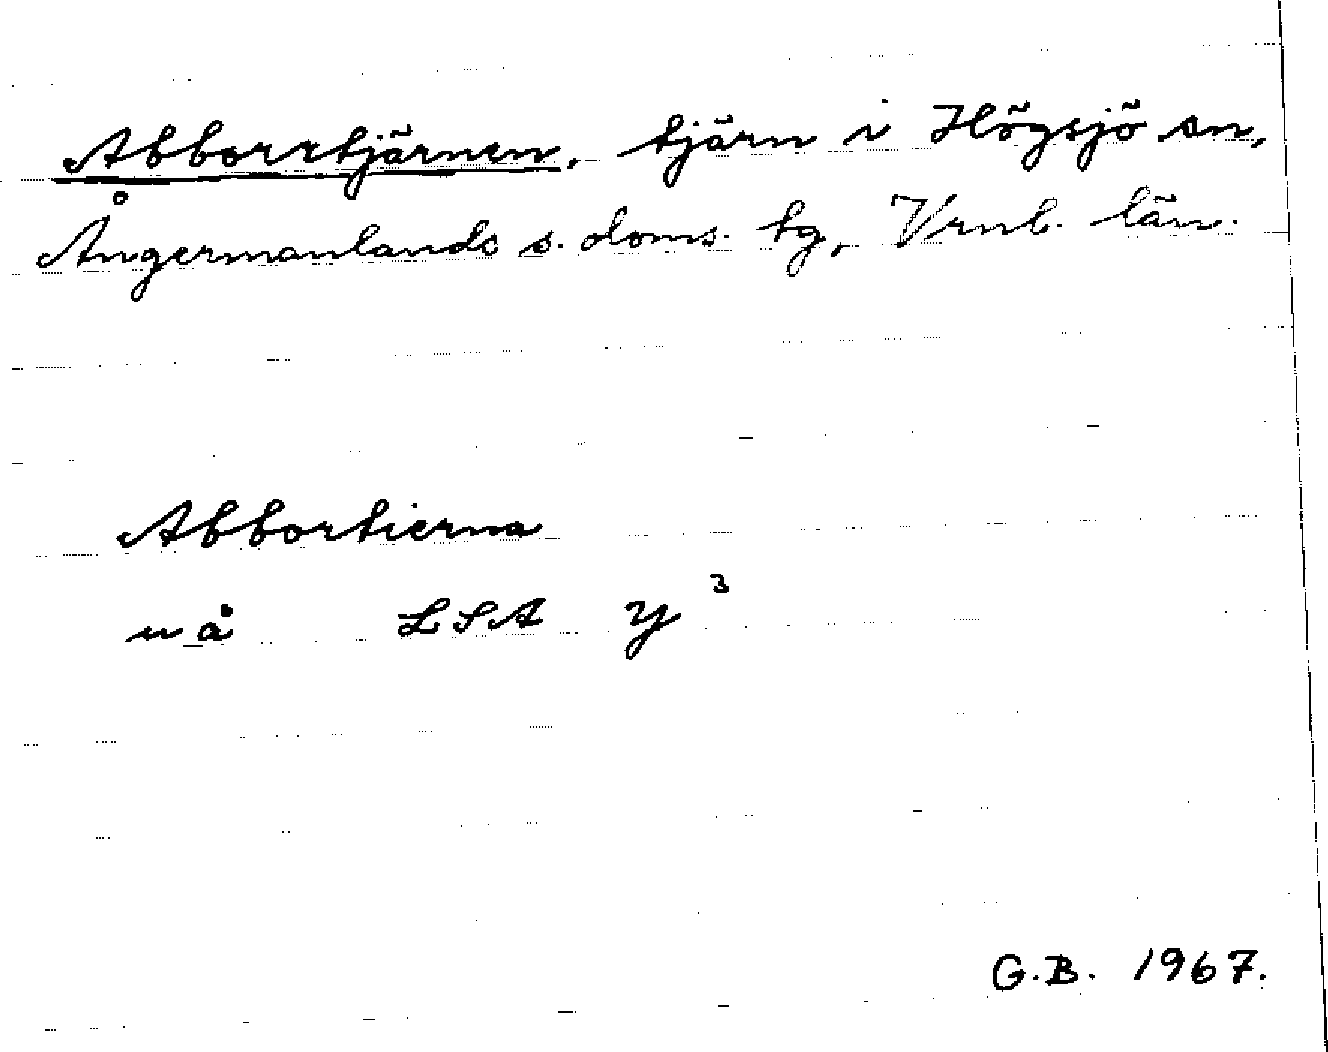 Abborrtjärnen, tjärn i Högsjö sn,
Ångermanlands s. doms. tg, Vrnl. län.
Abbortierna
uå LSA Y³
G.B. 1967.